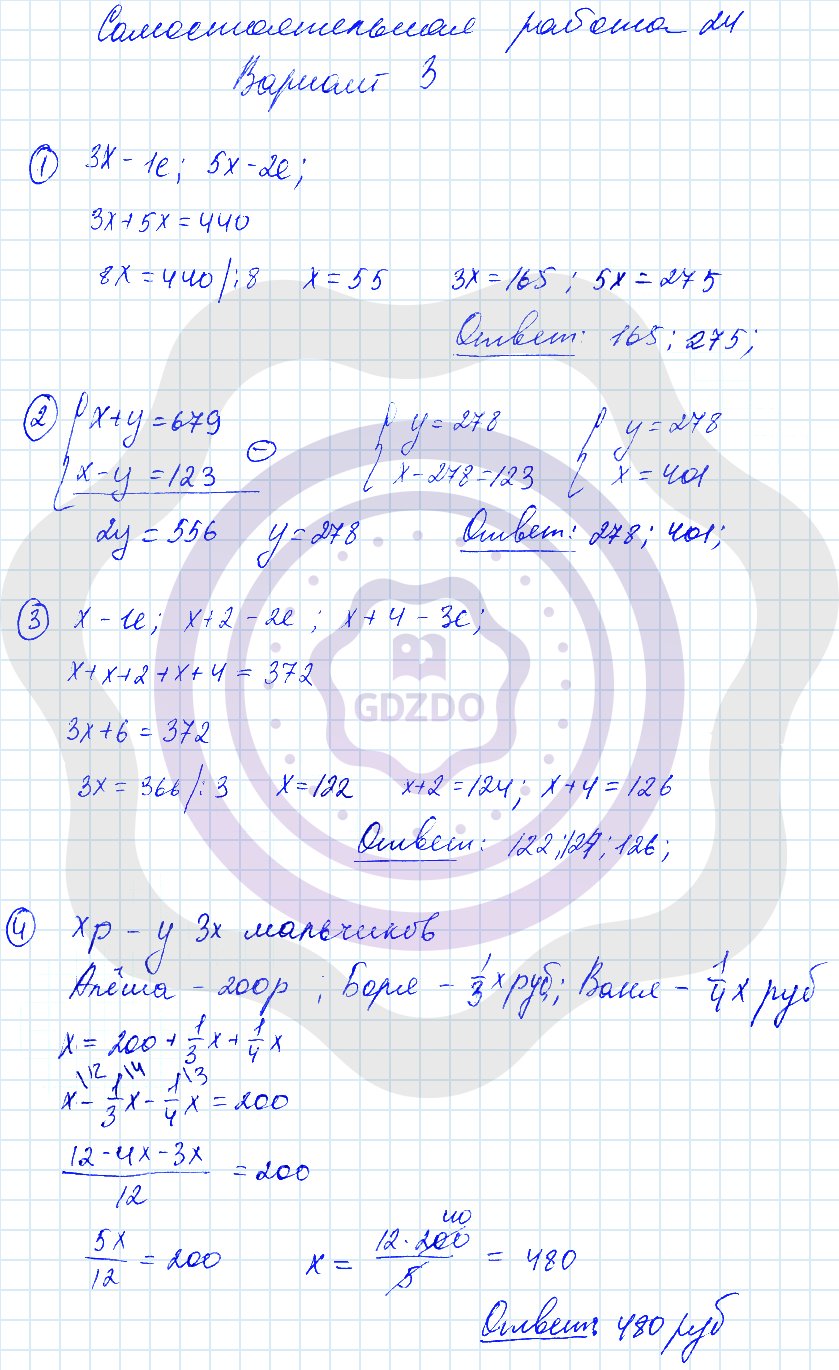 Самостоятельная работа 24
Вариант 3
① 3x - 1е; 5x - 2е;
3x + 5x = 440
8x = 440 |:8 x = 55 3x = 165; 5x = 275
Ответ: 165; 275;
② { x+y = 679 { y = 278 { y = 278
x-y = 123 ⊖ x - 278 = 123 x = 401
2y = 556 y = 278 Ответ: 278; 401;
③ x - 1е; x+2 - 2е; x+4 - 3е;
x + x+2 + x+4 = 372
3x + 6 = 372
GDZDO
3x = 366 |:3 x = 122 x+2 = 124; x+4 = 126
Ответ: 122; 124; 126;
④ xр - у 3х мальчиков
Алёша - 200р; Боря - 1/3 x руб; Ваня - 1/4 x руб
x = 200 + 1/3 x + 1/4 x
x\12 - 1/3\4 x - 1/4\3 x = 200
(12 - 4x - 3x)/12 = 200
5x/12 = 200 x = (12 · 200)/5 40 = 480
Ответ: 480 руб